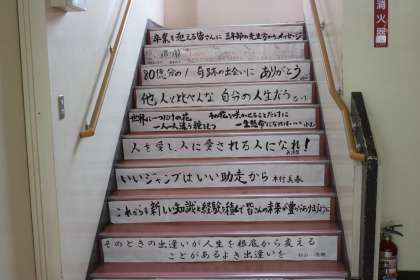 卒業を迎える皆さんに 三年部の先生方からメッセージ
80億分の1 奇跡の出会いに ありがとう
他人と比べんな 自分の人生だろ
世界に一つだけの花
一人一人違う種をもつ
その花を咲かせることだけに
一生懸命になればいい
人を愛し、人に愛される人になれ！
いいジャンプは いい助走から 木村美春
これからも新しい知識と経験を積んで皆さんの未来が豊かでありますように
そのときの出逢いが人生を根底から変える
ことがあるよき出逢いを
消火器